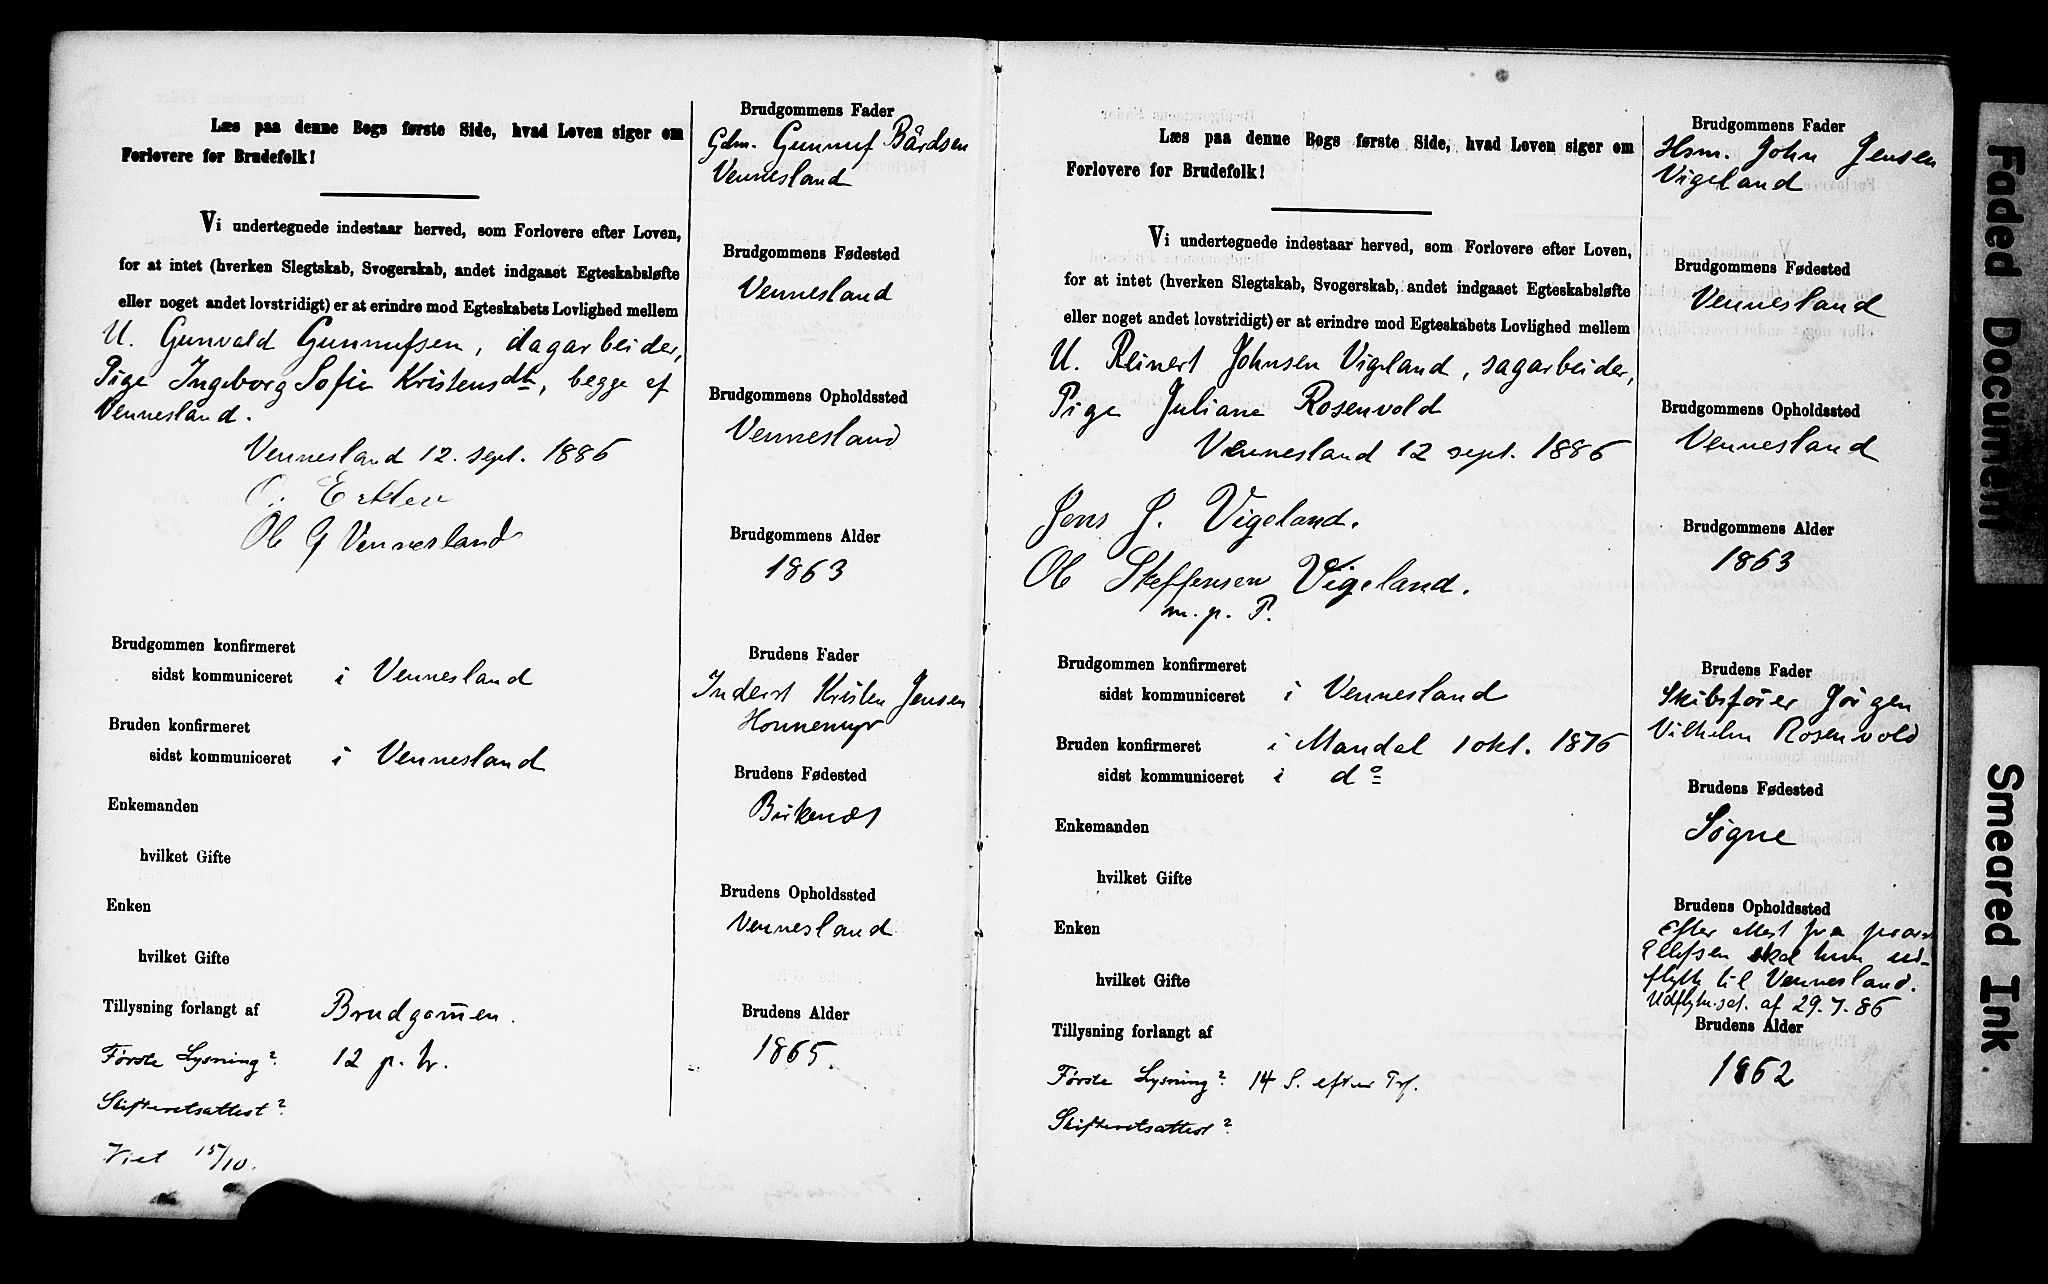 Læs paa denne Bogs første Side, hvad Loven siger om
Forlovere for Brudefolk!
Vi undertegnede indestaar herved, som Forlovere efter Loven,
for at intet (hverken Slegtskab, Svogerskab, andet indgaaet Egteskabsløfte
eller noget andet lovstridigt) er at erindre mod Egteskabets Lovlighed mellem
U. Gunvald Gunnufsen, dagarbeider,
Pige Ingeborg Sofie Kristensdt., begge af
Vennesland.
Vennesland 12. sept. 1886
Ole G Vennesland
Brudgommen konfirmeret
sidst kommuniceret i Vennesland
Bruden konfirmeret
sidst kommuniceret i Vennesland
Enkemanden
hvilket Gifte
Enken
hvilket Gifte
Tillysning forlangt af Brudgom̅en.
Første Lysning? 12 p. tr.
Skifteretsattest?
Viet 15/10.
Brudgommens Fader
Gdm. Gunnuf Bårdsen
Vennesland
Brudgommens Fødested
Vennesland
Brudgommens Opholdssted
Vennesland
Brudgommens Alder
1863
Brudens Fader
Inderst Kristen Jensen
Honnemyr
Brudens Fødested
Birkenæs
Brudens Opholdssted
Vennesland
Brudens Alder
1865.
Læs paa denne Bogs første Side, hvad Loven siger om
Forlovere for Brudefolk!
Vi undertegnede indestaar herved, som Forlovere efter Loven,
for at intet (hverken Slegtskab, Svogerskab, andet indgaaet Egteskabsløfte
eller noget andet lovstridigt) er at erindre mod Egteskabets Lovlighed mellem
U. Reinert Johnsen Vigeland, sagarbeider,
Pige Juliane Rosenvold
Vennesland 12 sept. 1886
Jens J. Vigeland.
Ole Steffensen Vigeland.
m. p. P.
Brudgommen konfirmeret
sidst kommuniceret i Vennesland
Bruden konfirmeret i Mandal 1 okt. 1876
sidst kommuniceret i do
Enkemanden
hvilket Gifte
Enken
hvilket Gifte
Tillysning forlangt af
Første Lysning? 14 S. efter Trf.
Skifteretsattest?
Brudgommens Fader
Hsm. John Jensen
Vigeland
Brudgommens Fødested
Vennesland
Brudgommens Opholdssted
Vennesland
Brudgommens Alder
1863
Brudens Fader
Skibsfører Jørgen
Vilhelm Rosenvold
Brudens Fødested
Søgne
Brudens Opholdssted
Efter Attest fra
Ellefsen skal hun ud-
flytte til Vennesland.
Udflytn.sat. af 29.7.86
Brudens Alder
1862
Faded Document
Smeared Ink